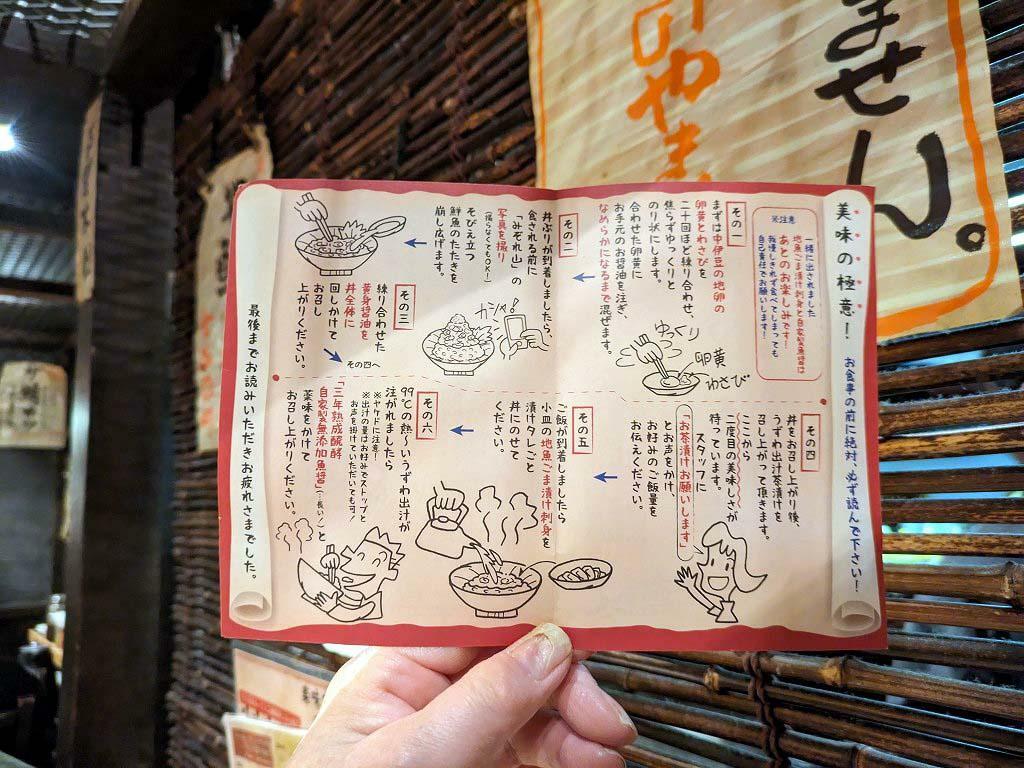 美味の極意!
お食事の前に絶対、必ず読んで下さい!
※注意
一緒に出されました
地魚ごま漬け刺身と自家製魚醤は
あとのお楽しみです!
我慢しきれず食べてしまっても
自己責任でお願いします!
その一
まずは中伊豆の地卵の
卵黄とわさびを
二十回ほど練り合わせ、
焦らずゆっくりと
のり状にします。
合わせた卵黄に
お手元のお醤油を注ぎ、
なめらかになるまで混ぜます。
ゆっくり
卵黄
わさび
その二
丼ぶりが到着しましたら、
食される前に
「みぞれ山」の
写真を撮り
(撮らなくてもOK!)
そびえ立つ
鮮魚のたたきを
崩し広げます。
カシャ!
その三
練り合わせた
黄身醤油を
丼全体に
回しかけて
お召し
上がりください。
その四へ
その四
丼をお召し上がり後、
うずわ出汁茶漬けを
召し上がって頂きます。
ここから
二度目の美味しさが
待っています。
スタッフに
「お茶漬けお願いします」
とお声をかけ、
お好みのご飯量を
お伝えください。
その五
ご飯が到着しましたら
小皿の地魚ごま漬け刺身を
漬けタレごと
丼にのせて
ください。
その六
99℃の熱〜いうずわ出汁が
注がれましたら
※ヤケドに注意!
※出汁の量はお好みでストップと
お声を掛けていただいても可!
「三年熟成醗酵
自家製無添加魚醤」(←長い!)と
薬味をかけて
お召し上がりください。
最後までお読みいただきお疲れさまでした。
ません。